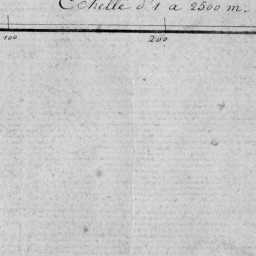 Echelle d'1 a 2500 m.
100 200